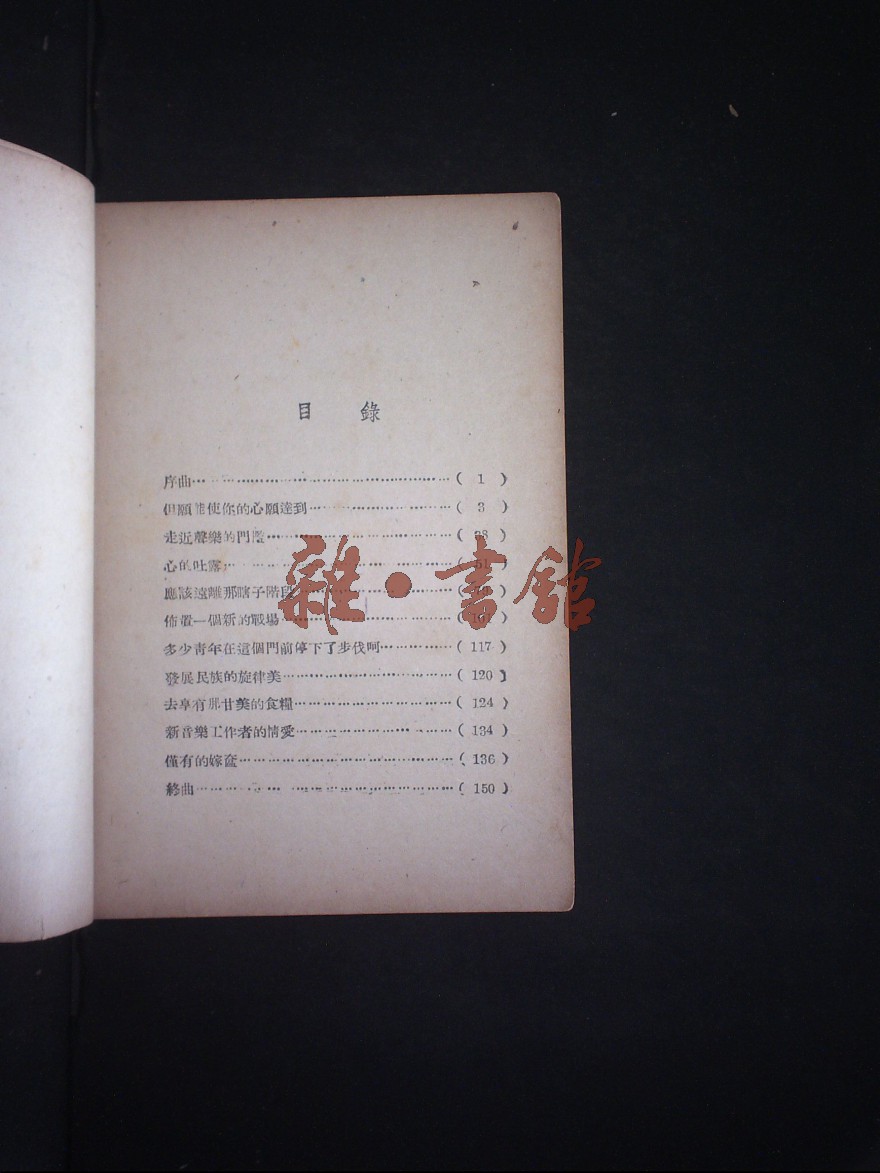 目 錄
序曲……………………………………( 1 )
但願能使你的心願達到……………………( 3 )
走近聲樂的門
心的吐露……………………51
應該遠離那瞎子階段
佈置一個新的戰場……………………101
多少青年在這個門前停下了步伐呵…………( 117 )
發展民族的旋律美……………………( 120 )
去享有那甘美的食糧……………………( 124 )
新音樂工作者的情愛……………………( 134 )
僅有的嫁奩……………………………( 136 )
終曲……………………………………( 150 )
雜·書館